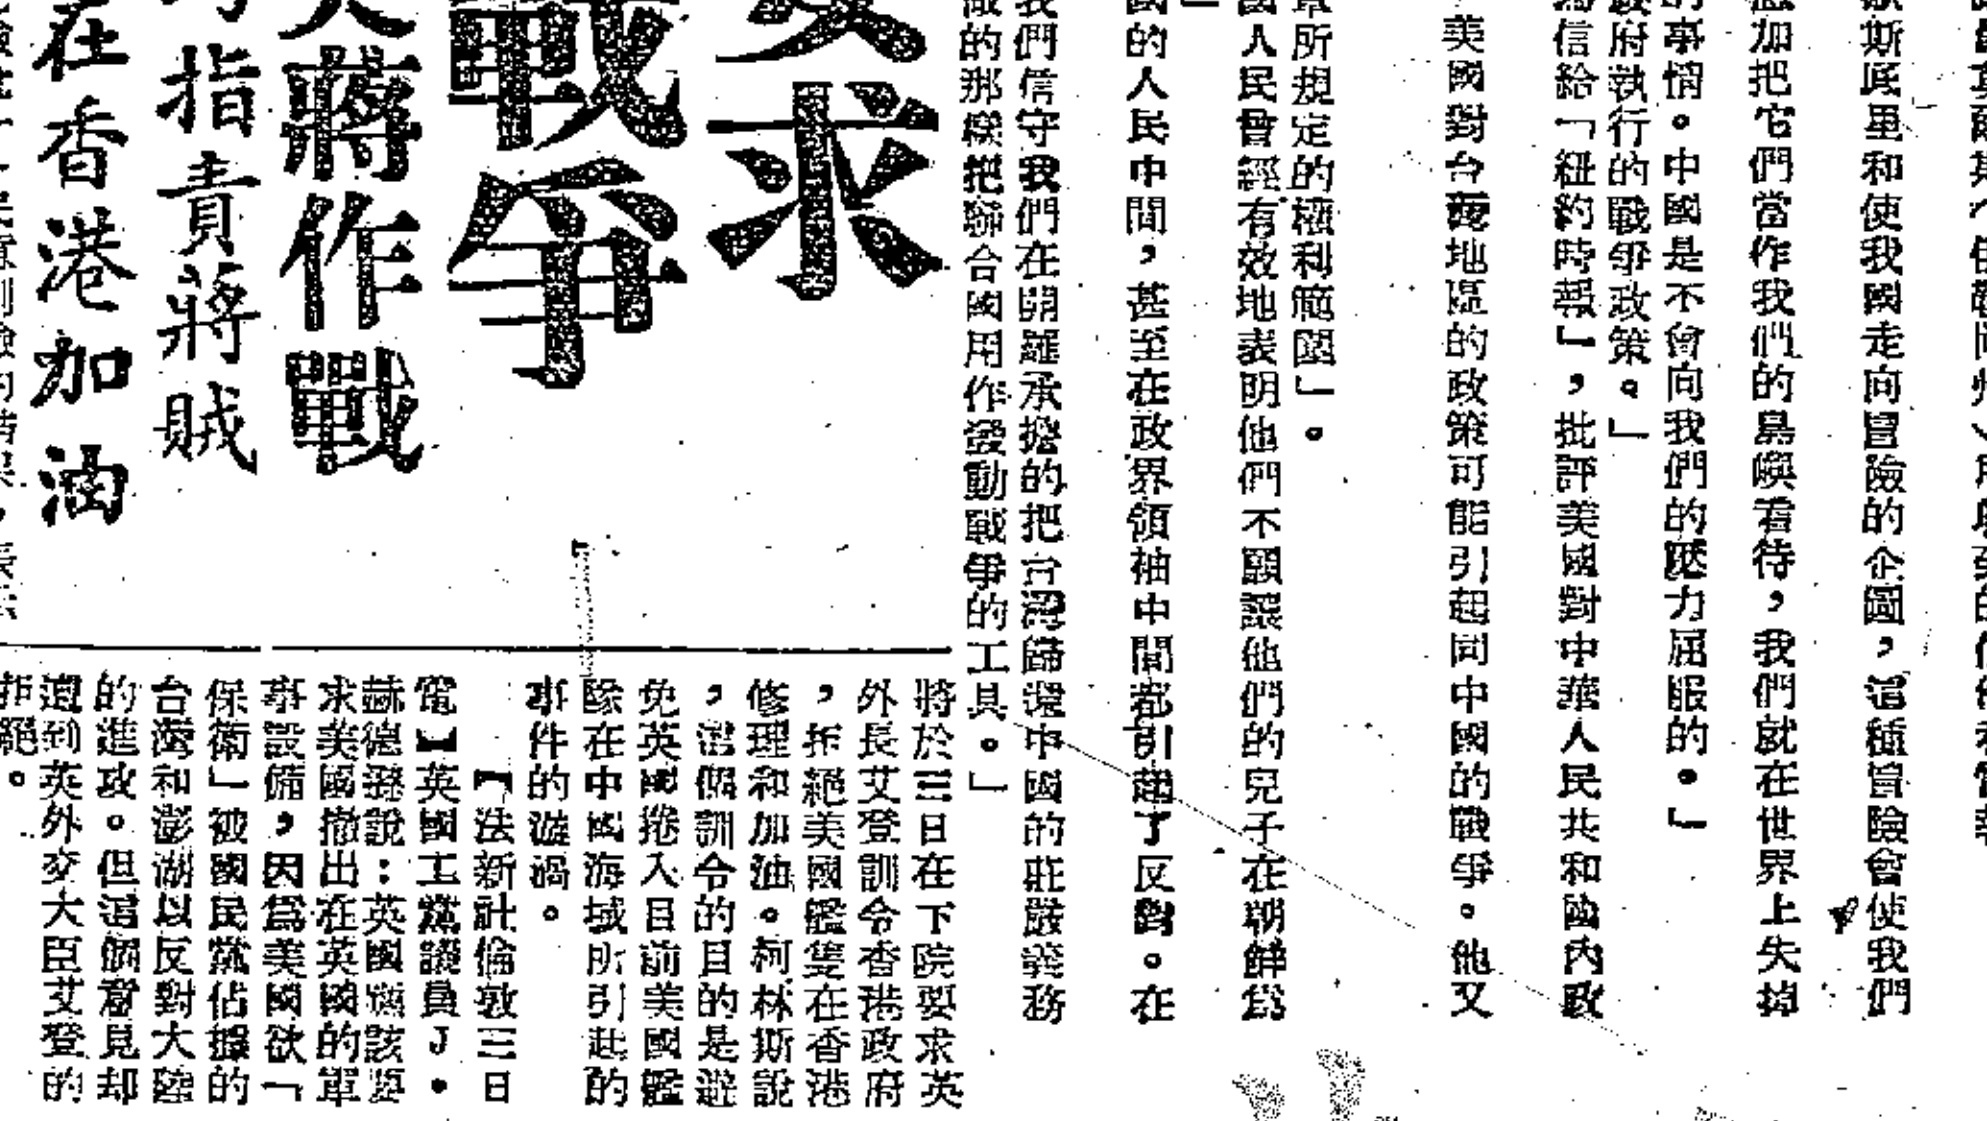 斯底里和使我國走向冒險的企圖，這種冒險會使我們
加把它們當作我們的島嶼看待，我們就在世界上失掉
的事情。中國是不會向我們的壓力屈服的。」
政府執行的戰爭政策。」
信給「紐約時報」，批評美國對中華人民共和國內政
美國對台灣地區的政策可能引起同中國的戰爭。他又
章所規定的權利範圍」。
國人民曾經有效地表明他們不願讓他們的兒子在朝鮮爲
」
國的人民中間，甚至在政界領袖中間都引起了反對。在
我們信守我們在開羅承擔的把台灣歸還中國的莊嚴義務
的那樣把聯合國用作發動戰爭的工具。」
求
戰爭
蔣作戰
指責蔣賊
在香港加油
將於三日在下院要求英
外長艾登訓令香港政府
，拒絕美國艦隻在香港
修理和加油。柯林斯說
，這個訓令的目的是避
免英國捲入目前美國艦
隊在中國海域所引起的
事件的漩渦。
【法新社倫敦三日
電】英國工黨議員J·
赫德遜說：英國應該要
求美國撤出在英國的軍
事設備，因爲美國欲「
保衛」被國民黨佔據的
台灣和澎湖以反對大陸
的進攻。但這個意見却
遭到英外交大臣艾登的
拒絕。